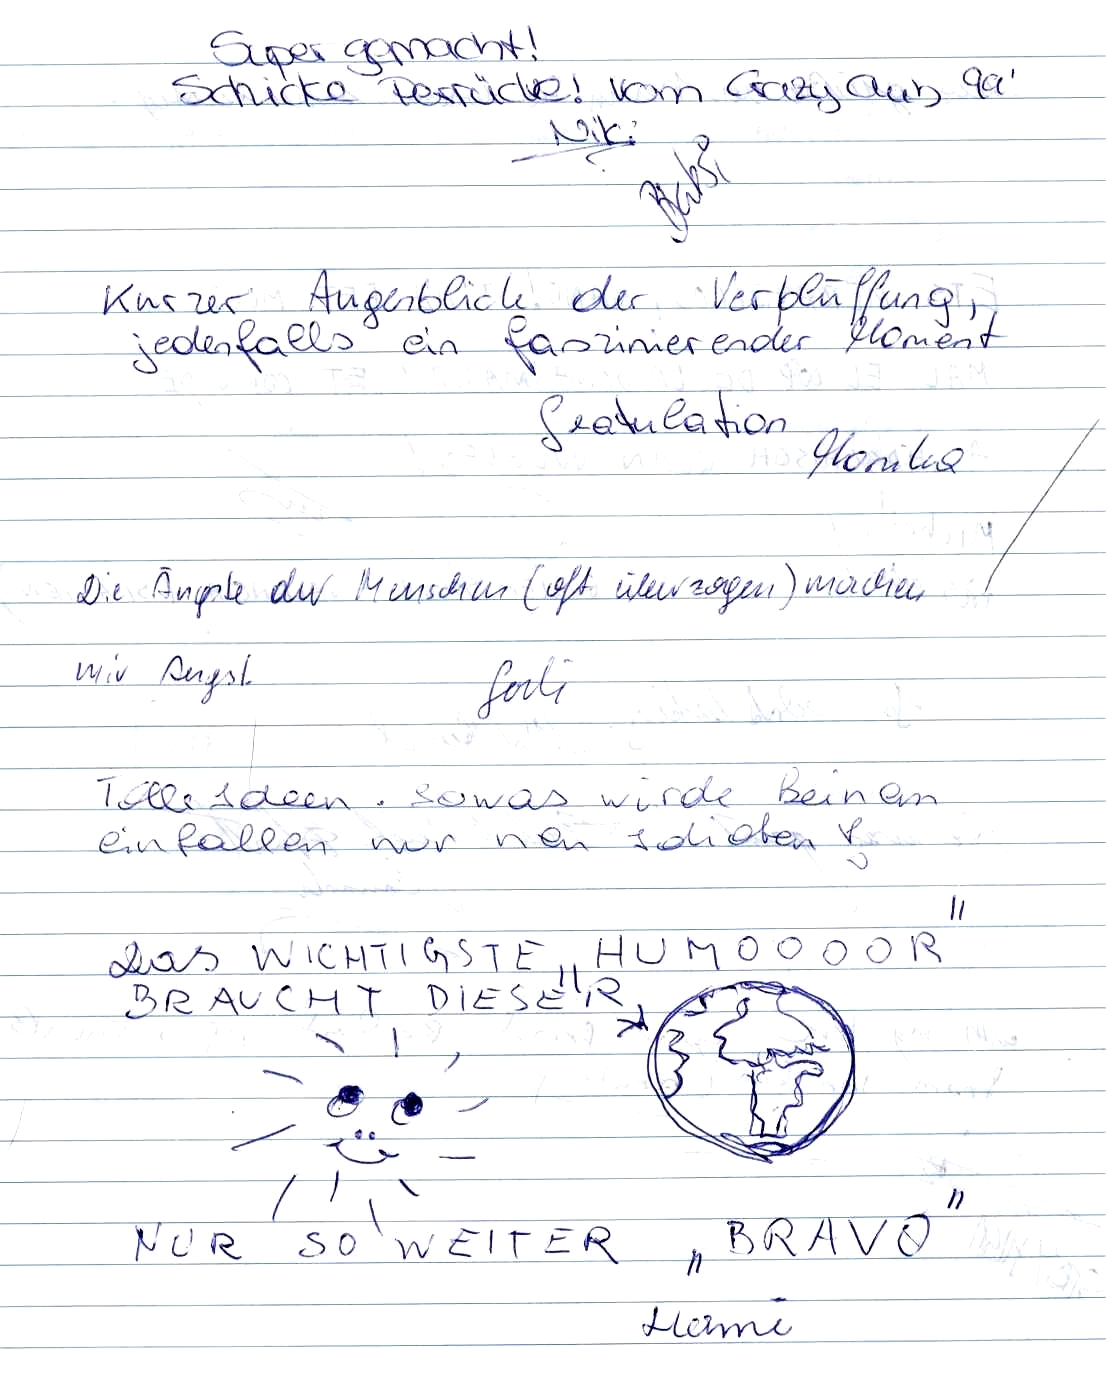 Super gemacht!
Schicke Perrücke! Vom Crazy Club 99'
Niki
Babsi
Kurzer Augenblick der Verblüffung,
jedenfalls ein faszinierender Moment
Gratulation
Monika
Die Ängste der Menschen (oft überzogen) machen
mir Angst.
Tolle Ideen. sowas wirde Beinem
einfallen nur nen Idioten
Das WICHTIGSTE „HUMOOOOR"
BRAUCHT DIESE"R
NUR SO WEITER „BRAVO"